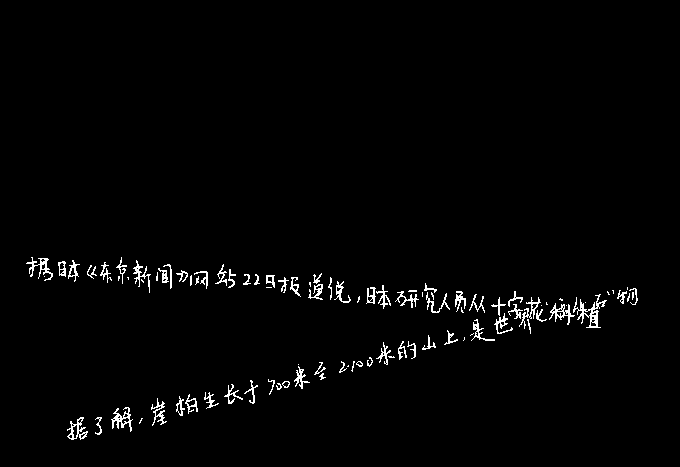 据日本《东京新闻》网站22日报道说,日本研究人员从十字花科植物
据了解,崖柏生长于700米至2100米的山上,是世界